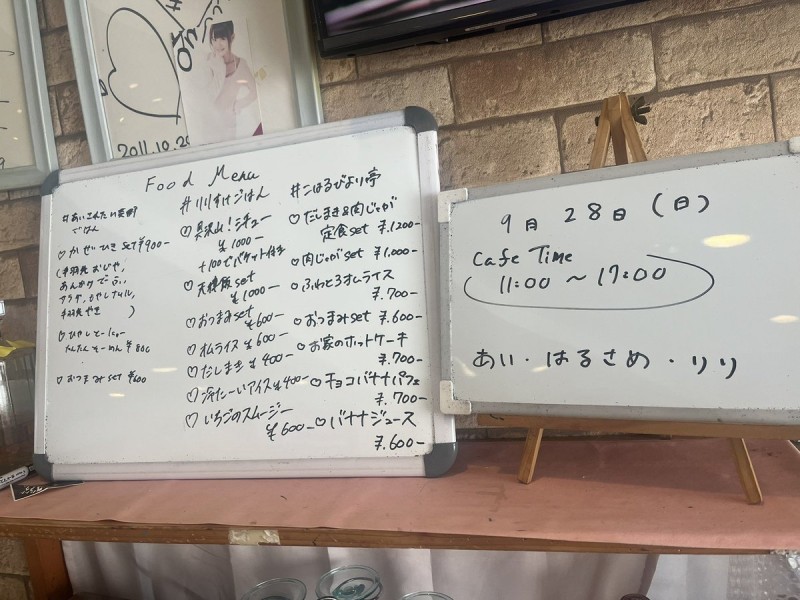 2011.10.20
Food Menu
#あいこされたい実朝
ごはん
♡かぜひき set ¥900-
あんかけ
♡おつまみ set ¥600
#りりすけごはん
♡具沢山！シチュー
¥1000-
+100でバケット付き
♡天津飯set
¥1000-
♡おつまみset
¥600-
♡オムライス ¥600-
♡だしまき ¥400-
♡冷たーいアイス ¥400-
♡いちごのスムージー
¥600-
#こはるびより亭
♡だしまき&肉じゃが
定食set ¥.1200-
♡肉じゃがset ¥.1.000-
♡ふわとろオムライス
¥.700-
♡おつまみset ¥.600-
♡お家のホットケーキ
¥.700-
♡チョコバナナパフェ
¥.700-
♡バナナジュース
¥.600-
9月 28日 (日)
Cafe Time
11:00 〜 17:00
あい・はるさめ・りり